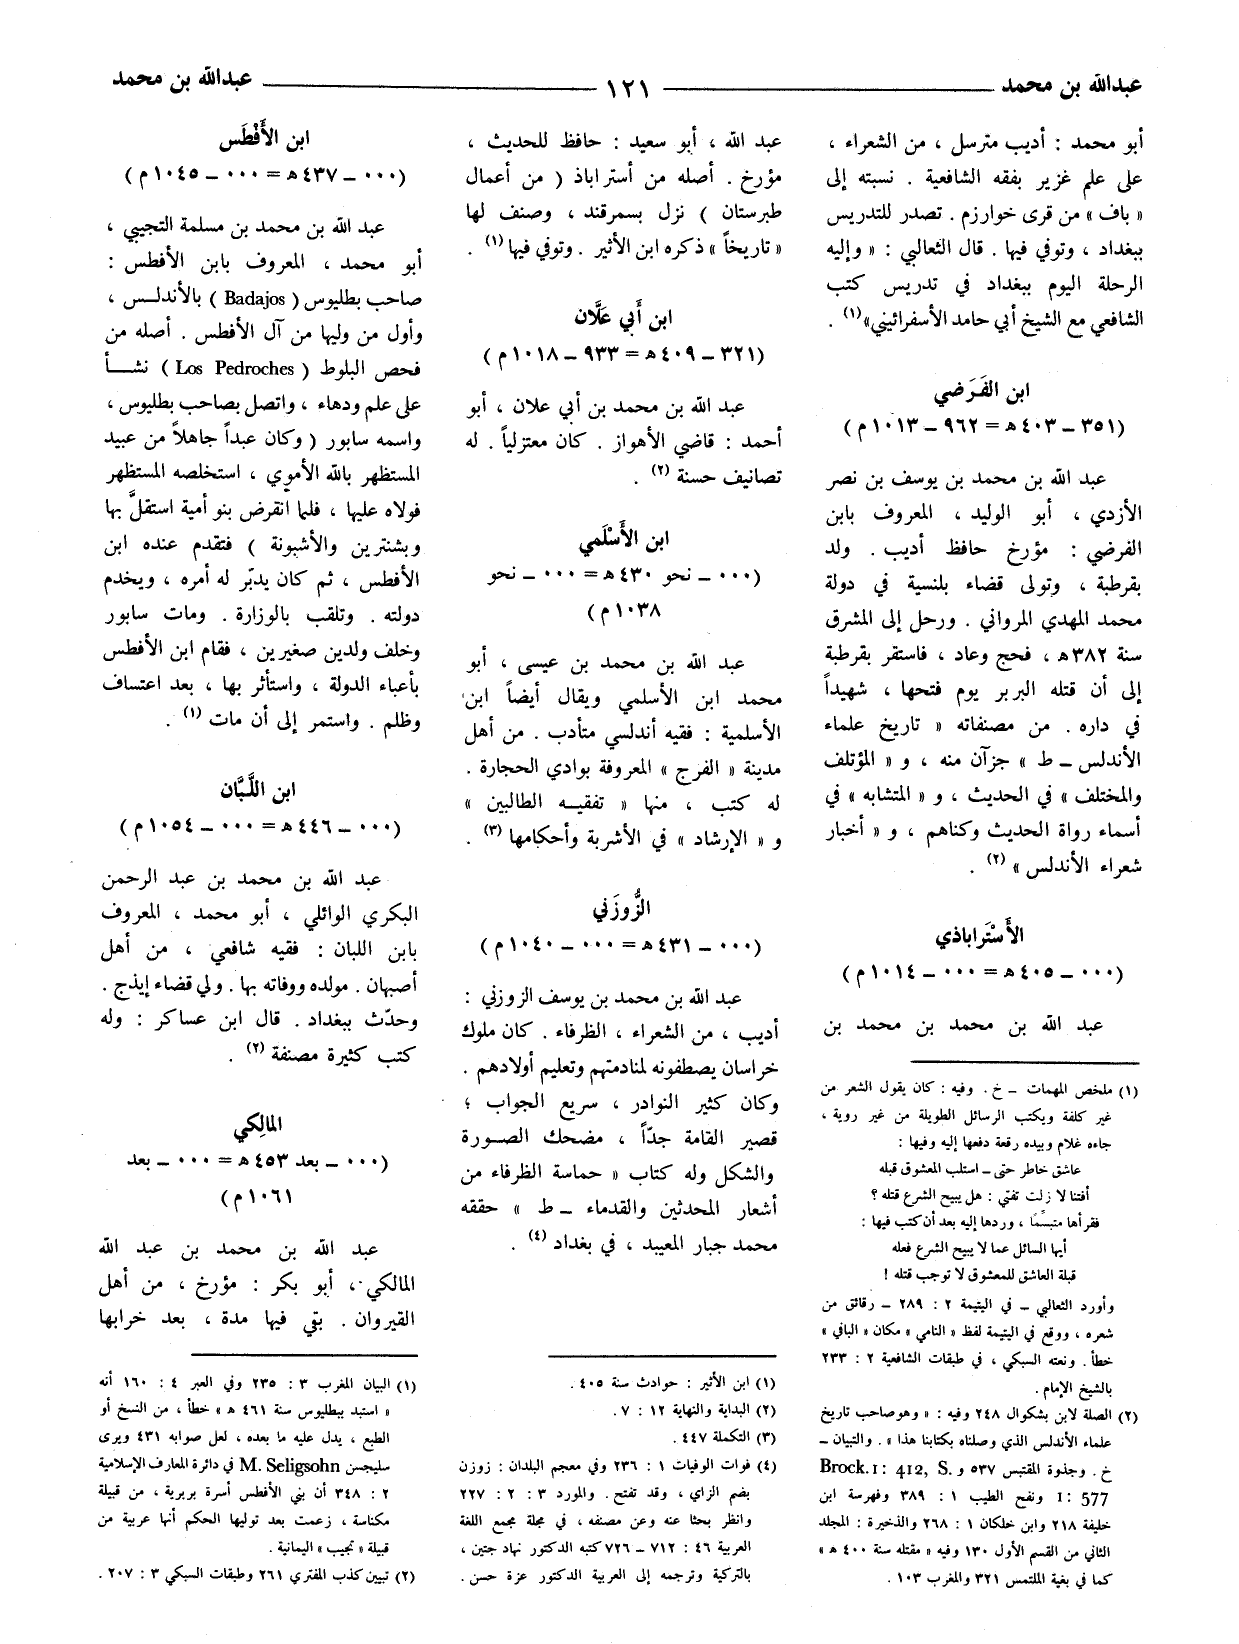 عبدالله بن محمد ــــــ ١٢١ ــــــ عبدالله بن محمد
أبو محمد : أديب مترسل ، من الشعراء ،
على علم غزير بفقه الشافعية . نسبته إلى
« باف » من قرى خوارزم . تصدر للتدريس
ببغداد ، وتوفي فيها . قال الثعالبي : « وإليه
الرحلة اليوم ببغداد في تدريس كتب
الشافعي مع الشيخ أبي حامد الأسفرائيني»(١) .
ابن الفَرَضي
(٣٥١ – ٤٠٣ هـ = ٩٦٢ – ١٠١٣ م)
عبد الله بن محمد بن يوسف بن نصر
الأزدي ، أبو الوليد ، المعروف بابن
الفرضي : مؤرخ حافظ أديب . ولد
بقرطبة ، وتولى قضاء بلنسية في دولة
محمد المهدي المرواني . ورحل إلى المشرق
سنة ٣٨٢هـ ، فحج وعاد ، فاستقر بقرطبة
إلى أن قتله البربر يوم فتحها ، شهيداً
في داره . من مصنفاته « تاريخ علماء
الأندلس – ط » جزآن منه ، و « المؤتلف
والمختلف » في الحديث ، و « المتشابه » في
أسماء رواة الحديث وكناهم ، و « أخبار
شعراء الأندلس » (٢) .
الأَسْتَراباذي
(٠٠٠ – ٤٠٥ هـ = ٠٠٠ – ١٠١٤ م)
عبد الله بن محمد بن محمد بن
(١) ملخص المهمات – خ . وفيه : كان يقول الشعر من
غير كلفة ويكتب الرسائل الطويلة من غير روية ،
جاءه غلام وبيده رقعة دفعها إليه وفيها :
عاشق خاطر حتى – استلب المعشوق قبله
أفتنا لا زلت تفتي : هل يبيح الشرع قتله ؟
فقرأها متبسّمًا ، وردها إليه بعد أن كتب فيها :
أيها السائل عما لا يبيح الشرع فعله
قبلة العاشق للمعشوق لا توجب قتله !
وأورد الثعالبي – في اليتيمة ٢ : ٢٨٩ – رقائق من
شعره ، ووقع في اليتيمة لفظ « النامي » مكان « البافي »
خطأ . ونعته السبكي ، في طبقات الشافعية ٢ : ٢٣٣
بالشيخ الإمام .
(٢) الصلة لابن بشكوال ٢٤٨ وفيه : « وهو صاحب تاريخ
علماء الأندلس الذي وصلناه بكتابنا هذا » . والتبيان –
خ . وجذوة المقتبس ٥٣٧ و Brock. I : 412, S.
I : 577 ونفح الطيب ١ : ٣٨٩ وفهرسة ابن
خليفة ٢١٨ وابن خلكان ١ : ٢٦٨ والذخيرة : المجلد
الثاني من القسم الأول ١٣٠ وفيه « مقتله سنة ٤٠٠ هـ »
كما في بغية الملتمس ٣٢١ والمغرب ١٠٣ .
عبد الله ، أبو سعيد : حافظ للحديث ،
مؤرخ . أصله من أستراباذ ( من أعمال
طبرستان ) نزل بسمرقند ، وصنف لها
« تاريخاً » ذكره ابن الأثير . وتوفي فيها (١) .
ابن أَبي عَلَّان
(٣٢١ – ٤٠٩ هـ = ٩٣٣ – ١٠١٨ م)
عبد الله بن محمد بن أبي علان ، أبو
أحمد : قاضي الأهواز . كان معتزلياً . له
تصانيف حسنة (٢) .
ابن الأَسْلَمي
(٠٠٠ – نحو ٤٣٠ هـ = ٠٠٠ – نحو
١٠٣٨ م)
عبد الله بن محمد بن عيسى ، أبو
محمد ابن الأسلمي ويقال أيضاً ابن
الأسلمية : فقيه أندلسي متأدب . من أهل
مدينة « الفرج » المعروفة بوادي الحجارة .
له كتب ، منها « تفقيه الطالبين »
و « الإرشاد » في الأشربة وأحكامها (٣) .
الزُّوزَني
(٠٠٠ – ٤٣١ هـ = ٠٠٠ – ١٠٤٠ م)
عبد الله بن محمد بن يوسف الزوزني :
أديب ، من الشعراء ، الظرفاء . كان ملوك
خراسان يصطفونه لمنادمتهم وتعليم أولادهم .
وكان كثير النوادر ، سريع الجواب ؛
قصير القامة جدّاً ، مضحك الصورة
والشكل وله كتاب « حماسة الظرفاء من
أشعار المحدثين والقدماء – ط » حققه
محمد جبار المعيبد ، في بغداد (٤) .
(١) ابن الأثير : حوادث سنة ٤٠٥ .
(٢) البداية والنهاية ١٢ : ٧ .
(٣) التكملة ٤٤٧ .
(٤) فوات الوفيات ١ : ٢٣٦ وفي معجم البلدان : زوزن
بضم الزاي ، وقد تفتح . والمورد ٣ : ٢ : ٢٢٧
وانظر بحثا عنه وعن مصنفه ، في مجلة مجمع اللغة
العربية ٤٦ : ٧١٢ – ٧٢٦ كتبه الدكتور نهاد جتين ،
بالتركية وترجمه إلى العربية الدكتور عزة حسن .
ابن الأَفْطَس
(٠٠٠ – ٤٣٧ هـ = ٠٠٠ – ١٠٤٥ م)
عبد الله بن محمد بن مسلمة التجيبي ،
أبو محمد ، المعروف بابن الأفطس :
صاحب بطليوس ( Badajos ) بالأندلس ،
وأول من وليها من آل الأفطس . أصله من
فحص البلوط ( Los Pedroches ) نشأ
على علم ودهاء ، واتصل بصاحب بطليوس ،
واسمه سابور ( وكان عبداً جاهلاً من عبيد
المستظهر بالله الأموي ، استخلصه المستظهر
فولاه عليها ، فلما انقرض بنو أمية استقلَّ بها
وبشنترين والأشبونة ) فتقدم عنده ابن
الأفطس ، ثم كان يدبّر له أمره ، ويخدم
دولته . وتلقب بالوزارة . ومات سابور
وخلف ولدين صغيرين ، فقام ابن الأفطس
بأعباء الدولة ، واستأثر بها ، بعد اعتساف
وظلم . واستمر إلى أن مات (١) .
ابن اللَّبَّان
(٠٠٠ – ٤٤٦ هـ = ٠٠٠ – ١٠٥٤ م)
عبد الله بن محمد بن عبد الرحمن
البكري الوائلي ، أبو محمد ، المعروف
بابن اللبان : فقيه شافعي ، من أهل
أصبهان . مولده ووفاته بها . ولي قضاء إيذج .
وحدّث ببغداد . قال ابن عساكر : وله
كتب كثيرة مصنفة (٢) .
المالِكي
(٠٠٠ – بعد ٤٥٣ هـ = ٠٠٠ – بعد
١٠٦١ م)
عبد الله بن محمد بن عبد الله
المالكي ، أبو بكر : مؤرخ ، من أهل
القيروان . بقي فيها مدة ، بعد خرابها
(١) البيان المغرب ٣ : ٢٣٥ وفي العبر ٤ : ١٦٠ أنه
« استبد ببطليوس سنة ٤٦١ هـ » خطأ ، من النسخ أو
الطبع ، يدل عليه ما بعده ، لعل صوابه ٤٣١ ويرى
سليجسن M. Seligsohn في دائرة المعارف الإسلامية
٢ : ٣٤٨ أن بني الأفطس أسرة بربرية ، من قبيلة
مكناسة ، زعمت بعد توليها الحكم أنها عربية من
قبيلة « تجيب » اليمانية .
(٢) تبيين كذب المفتري ٢٦١ وطبقات السبكي ٣ : ٢٠٧ .